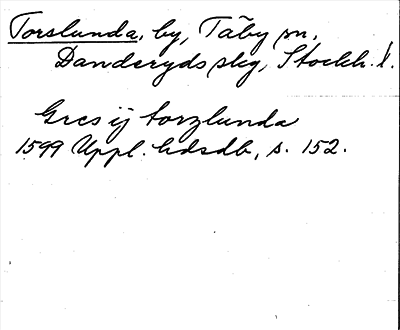 Torslunda, by, Täby sn,
Danderyds skg, Stockh. l.
Grcs ij torzlunda
1599 Uppl. hdsdb, s. 152.